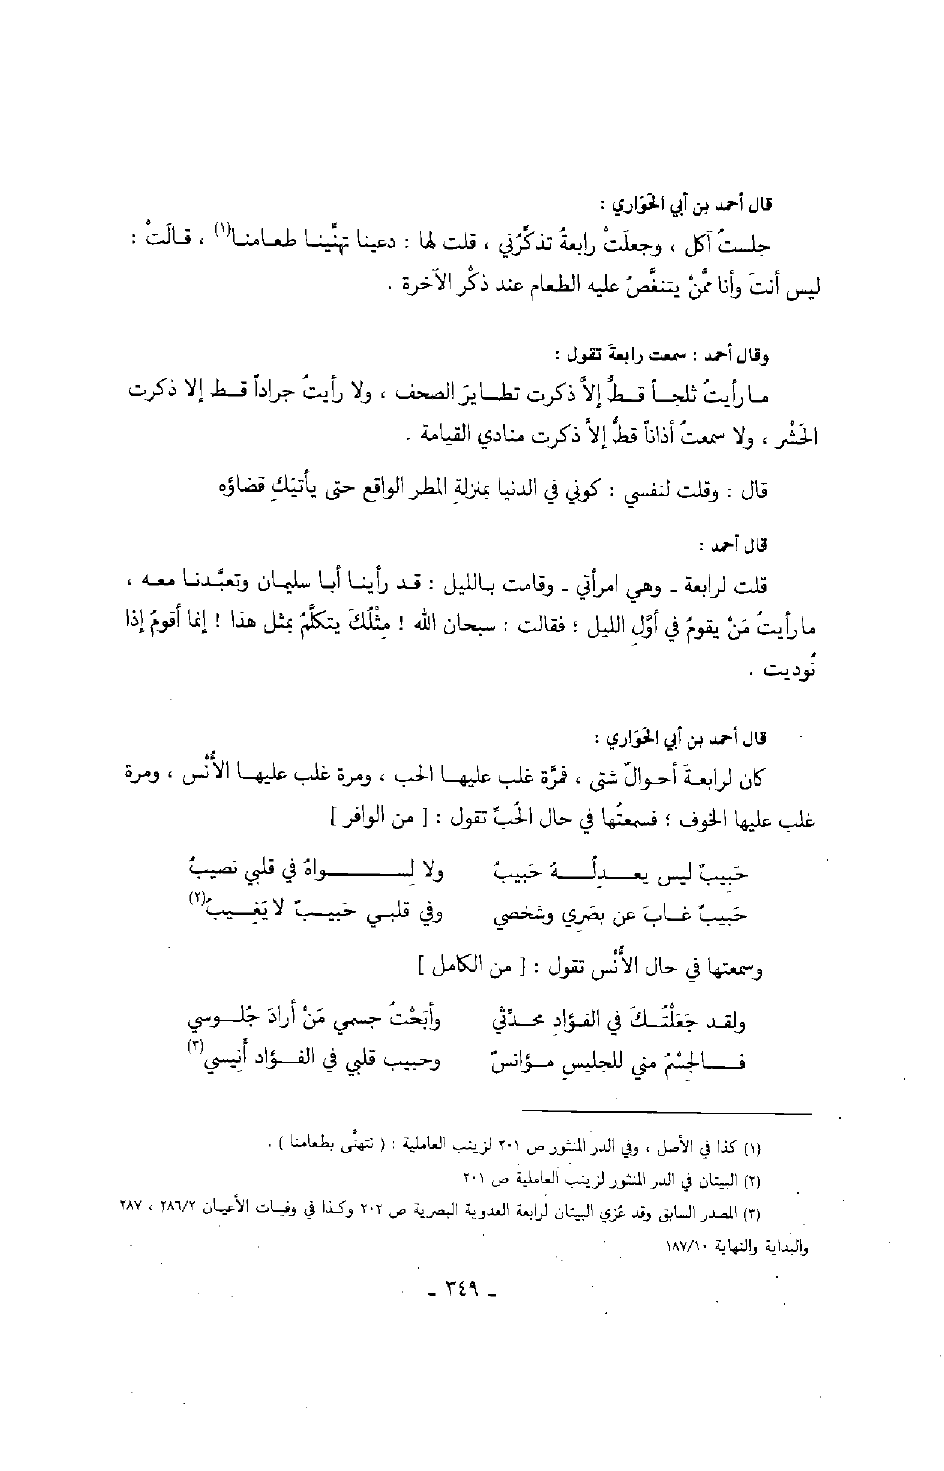 قال أحمد بن أبي الحَوَاري :
جلستُ آكل ، وجعلَتْ رابعةُ تذكِّرُني ، قلت لها : دعينا تهنِّينا طعامنا(١) ، قالَتْ :
ليس أنتَ وأنا ممَّنْ يتنغَّصُ عليه الطعام عند ذكْر الآخرة .
وقال أحمد : سمعت رابعة تقول :
ما رأيتُ ثلجاً قطُّ إلاَّ ذكرت تطايرَ الصحف ، ولا رأيتُ جراداً قط إلا ذكرت
الحَشْر ، ولا سمعتُ أذاناً قطُّ إلاَّ ذكرت منادي القيامة .
قال : وقلت لنفسي : كوني في الدنيا بمنزلةِ المطر الواقع حتى يأتيَكِ قضاؤه
قال أحمد :
قلت لرابعة ـ وهي امرأتي ـ وقامت بالليل : قد رأينا أبا سليمان وتعبَّدنا معه ،
ما رأيتُ مَنْ يقومُ في أوَّلِ الليل ؛ فقالت : سبحان الله ! مثْلُكَ يتكلَّمُ بمثل هذا ! إنما أقومُ إذا
نُوديت .
قال أحمد بن أبي الحَوَاري :
كان لرابعةَ أحوالٌ شتى ، فمرَّة غلب عليها الحب ، ومرة غلب عليها الأُنْس ، ومرة
غلب عليها الخوف ؛ فسمعتُها في حال الحُبِّ تقول : [ من الوافر ]
حَبِيبٌ ليس يعدِلُه حَبِيبُ ولا لِسِواهُ في قلبي نصيبُ
حَبيبٌ غابَ عن بصَري وشخصي وفي قلبي حَبيبٌ لا يَغِيبُ(٢)
وسمعتها في حال الأُنْس تقول : [ من الكامل ]
ولقد جَعَلْتُكَ في الفؤادِ محدِّثي وأبَحْتُ جسمي مَنْ أرادَ جُلوسي
فالجسْمُ مني للجليسِ مؤانسٌ وحبيب قلبي في الفؤاد أَنِيسي(٣)
(١) كذا في الأصل ، وفي الدر المنثور ص ٢٠١ لزينب العاملية : ( نتهنَّى بطعامنا ) .
(٢) البيتان في الدر المنثور لزينب العاملية ص ٢٠١
(٣) المصدر السابق وقد عُزي البيتان لرابعة العدوية البصرية ص ٢٠٢ وكذا في وفيات الأعيان ٢٨٦/٢ ، ٢٨٧
والبداية والنهاية ١٨٧/١٠
ـ ٣٤٩ ـ